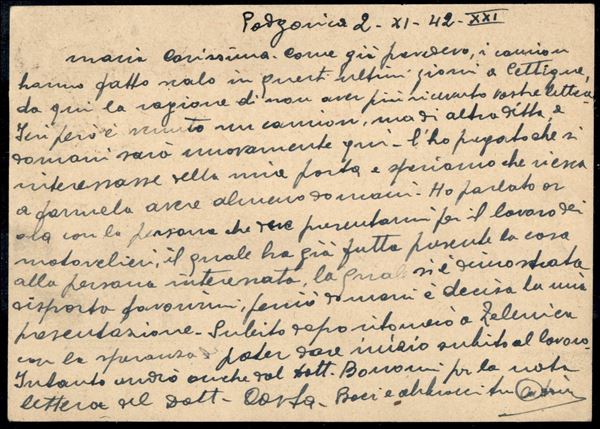 Podgorica 2-XI-42-XXI
Maria Carissima - Come già prevedevo, i camion
hanno fatto scalo in quest'ultimi giorni a Cettigne,
da qui la ragione di non aver più ricevuto vostre lettere.
Ieri però è venuto un camion, ma di altra ditta, e
domani sarà nuovamente qui - l'ho pregato che si
interessasse della mia posta e speriamo che riesca
a farmela avere almeno domani - Ho parlato or
ora con la persona che deve presentarmi per il lavoro dei
motovelieri, il quale ha già fatto presente la cosa
alla persona interessata, la quale si è dimostrata
disposta favorirmi, perciò domani è decisa la mia
presentazione - Subito dopo ritornerò a Zelenica
con la speranza di poter dare inizio subito al lavoro -
Intanto andrò anche dal dott. Bonomi per la nota
lettera del dott - Costa - Baci e abbracci tuo